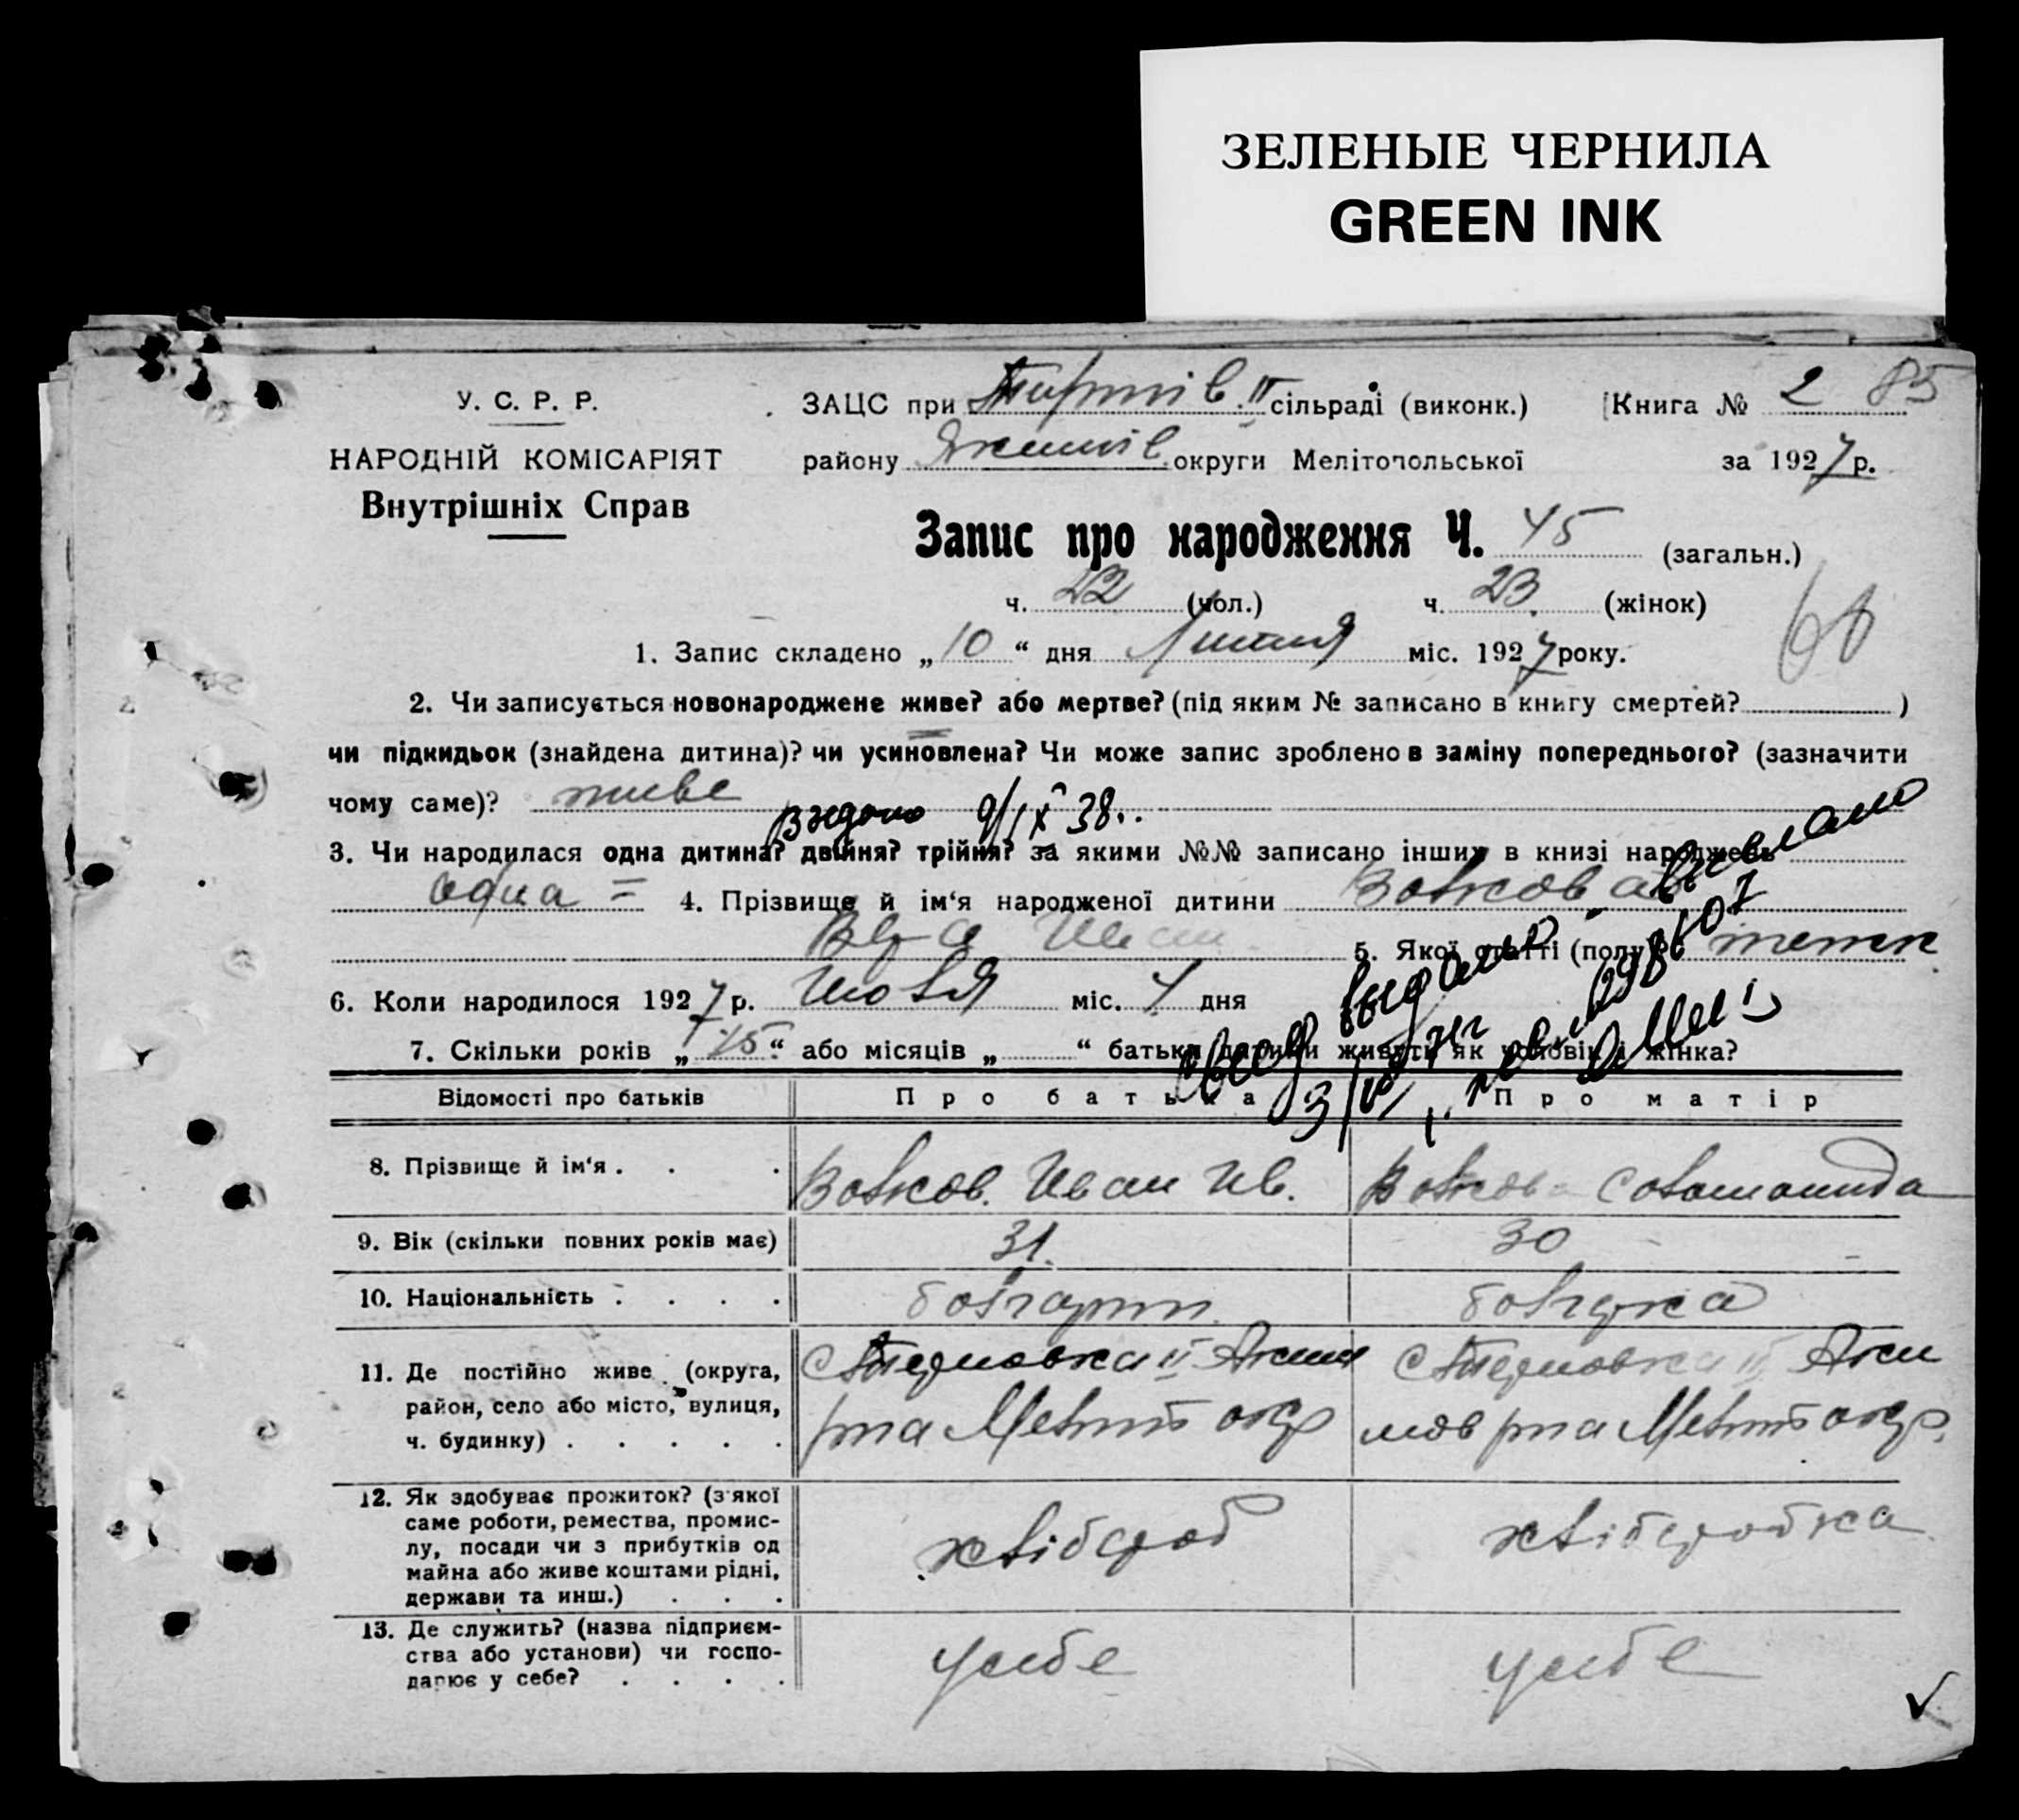 ЗЕЛЕНЫЕ ЧЕРНИЛА
GREEN INK
У. С. Р. Р.
НАРОДНІЙ КОМІСАРІЯТ
Внутрішніх Справ
ЗАЦС при II сільраді (виконк.)
Книга № 2 85
району Якимів округи Мелітопольської
за 1927 р.
Запис про народження Ч. 45 (загальн.)
ч. 22 (чол.) ч. 23. (жінок)
1. Запис складено „10“ дня Липня міс. 1927 року.
2. Чи записується новонароджене живе? або мертве? (під яким № записано в книгу смертей? )
чи підкидьок (знайдена дитина)? чи усиновлена? Чи може запис зроблено в заміну попереднього? (зазначити
чому саме)? живе
9/IX 38..
3. Чи народилася одна дитина? двійня? трійня? за якими №№ записано інших в книзі народжень
одна = 4. Прізвище й ім‘я народженої дитини Волкова
5. Якої статті (полу)? женск
6. Коли народилося 1927 р. Июля міс. 4 дня
7. Скільки років „15“ або місяців „ “ батьки дитини живуть як чоловік і жінка?
Відомості про батьків
Про батька
Про матір
8. Прізвище й ім‘я . . .
Волков. Иван Ив.
Волкова Соломонида
9. Вік (скільки повних років має)
31.
30
10. Національність . . . .
болгарин.
болгарка
11. Де постійно живе (округа,
район, село або місто, вулиця,
ч. будинку) . . . . .
II Яким
р-на Меліт окр
II Яки
мов р-на Меліт окр.
12. Як здобуває прожиток? (з якої
саме роботи, ремества, промис-
лу, посади чи з прибутків од
майна або живе коштами рідні,
держави та инш.) . . .
хлібороб
хліборобка
13. Де служить? (назва підприєм-
ства або установи) чи госпо-
дарює у себе? . . . .
у себе
у себе